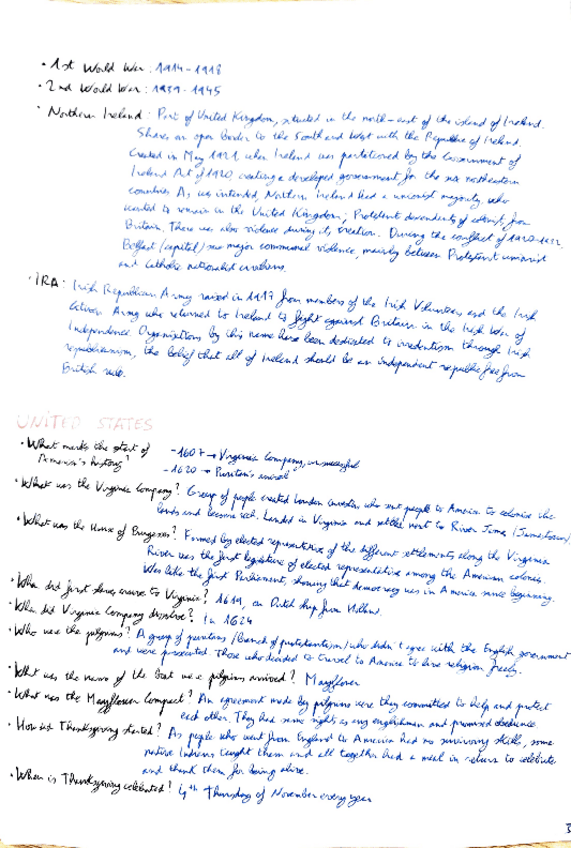 · 1st World War: 1914-1918
· 2nd World War: 1939-1945
· Northern Ireland: Part of United Kingdom, situated in the north-east of the island of Ireland.
Shares an open border to the South and West with the Republic of Ireland.
Created in May 1921 when Ireland was partitioned by the Government of
Ireland Act of 1920, creating a developed government for the six northeastern
countries. As was intended, Northern Ireland had a unionist majority, who
wanted to remain in the United Kingdom; Protestent descendents of colonist, from
Britain. There was also violence during its creation. During the conflict of 1920-1922,
Belfast (capital) saw major communal violence, mainly between Protestant unionist
and Catholic nationalist civilians.
· IRA: Irish Republican Army raised in 1917 from members of the Irish Volunteers and the Irish
Citizen Army who returned to Ireland to fight against Britain in the Irish War of
Independence. Organizations by this name have been dedicated to irredentism through Irish
republicanism, the belief that all of Ireland should be an independent republic free from
British rule.
UNITED STATES
· What marks the start of
America's history?
- 1607 → Virginia Company, unsuccessful
- 1620 → Puritan's arrival
· What was the Virginia Company? Group of people created London investors who sent people to America to colonise the
lands and become rich. Landed in Virginia and settled next to River James (Jamestown).
· What was the House of Burgesses? Formed by elected representatives of the different settlements along the Virginia
River was the first legislature of elected representative among the American colonies.
Was like the first Parliament, showing that democracy was in America since beginning.
· When did first slaves arrive to Virginia? 1619, on Dutch ship from
· When did Virginia Company dissolve? In 1624
· Who were the pilgrims? A group of puritans (branch of protestantism) who didn't agree with the English government
and were prosecuted. Those who decided to travel to America to have religion freely.
· What was the name of the boat were pilgrims arrived? Mayflower
· What was the Mayflower Compact? An agreement made by pilgrims were they committed to help and protect
each other. They had same rights as any englishmen and promised obedience.
· How did Thanksgiving started? As people who went from England to America had no surviving skills, some
native Indians taught them and all together had a meal in return to celebrate
and thank them for being alive.
· When is Thanksgiving celebrated? 4th Thursday of November every year